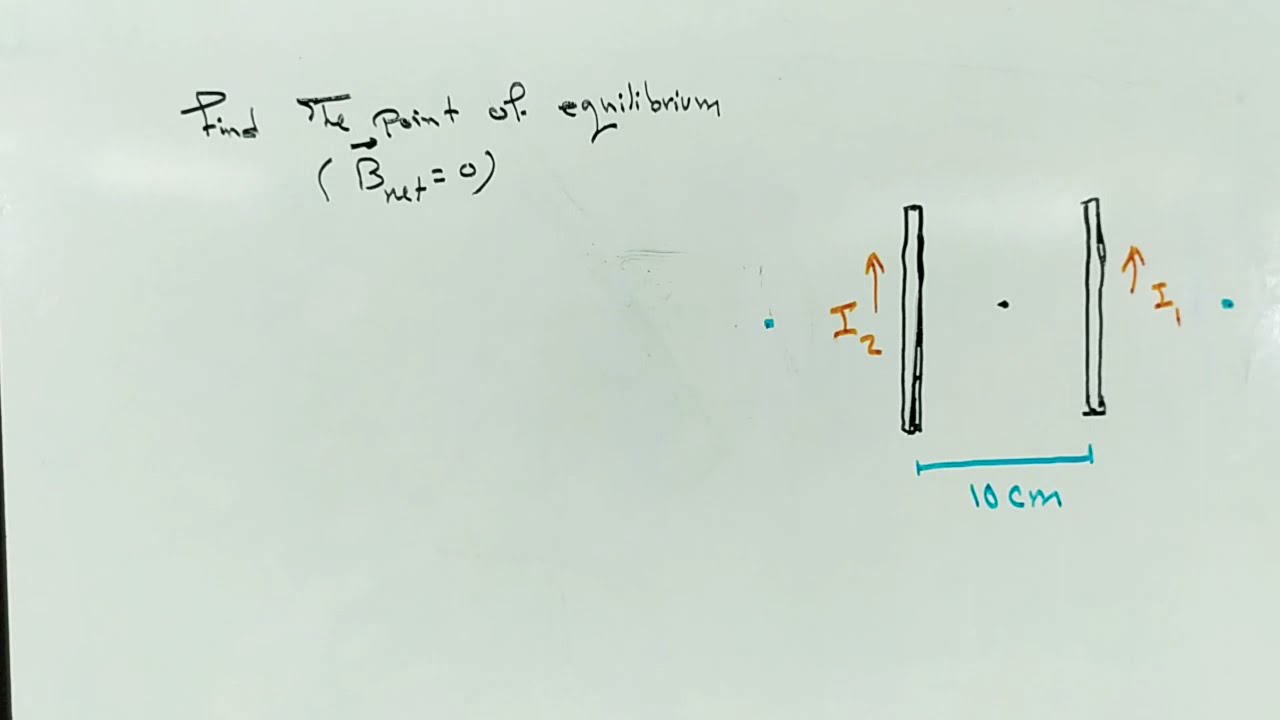 Find The point of equilibrium
(B⃗net = 0)
I2
I1
10 cm